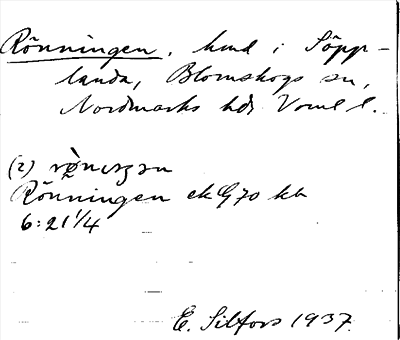 Rönningen, hmd i Söpp-
landa, Blomskogs sn,
Nordmarks hd, Värml l.
(2) rø̀nɩŋən
Rönningen ek G70 kb
6:21 1/4
E. Silfors 1937.